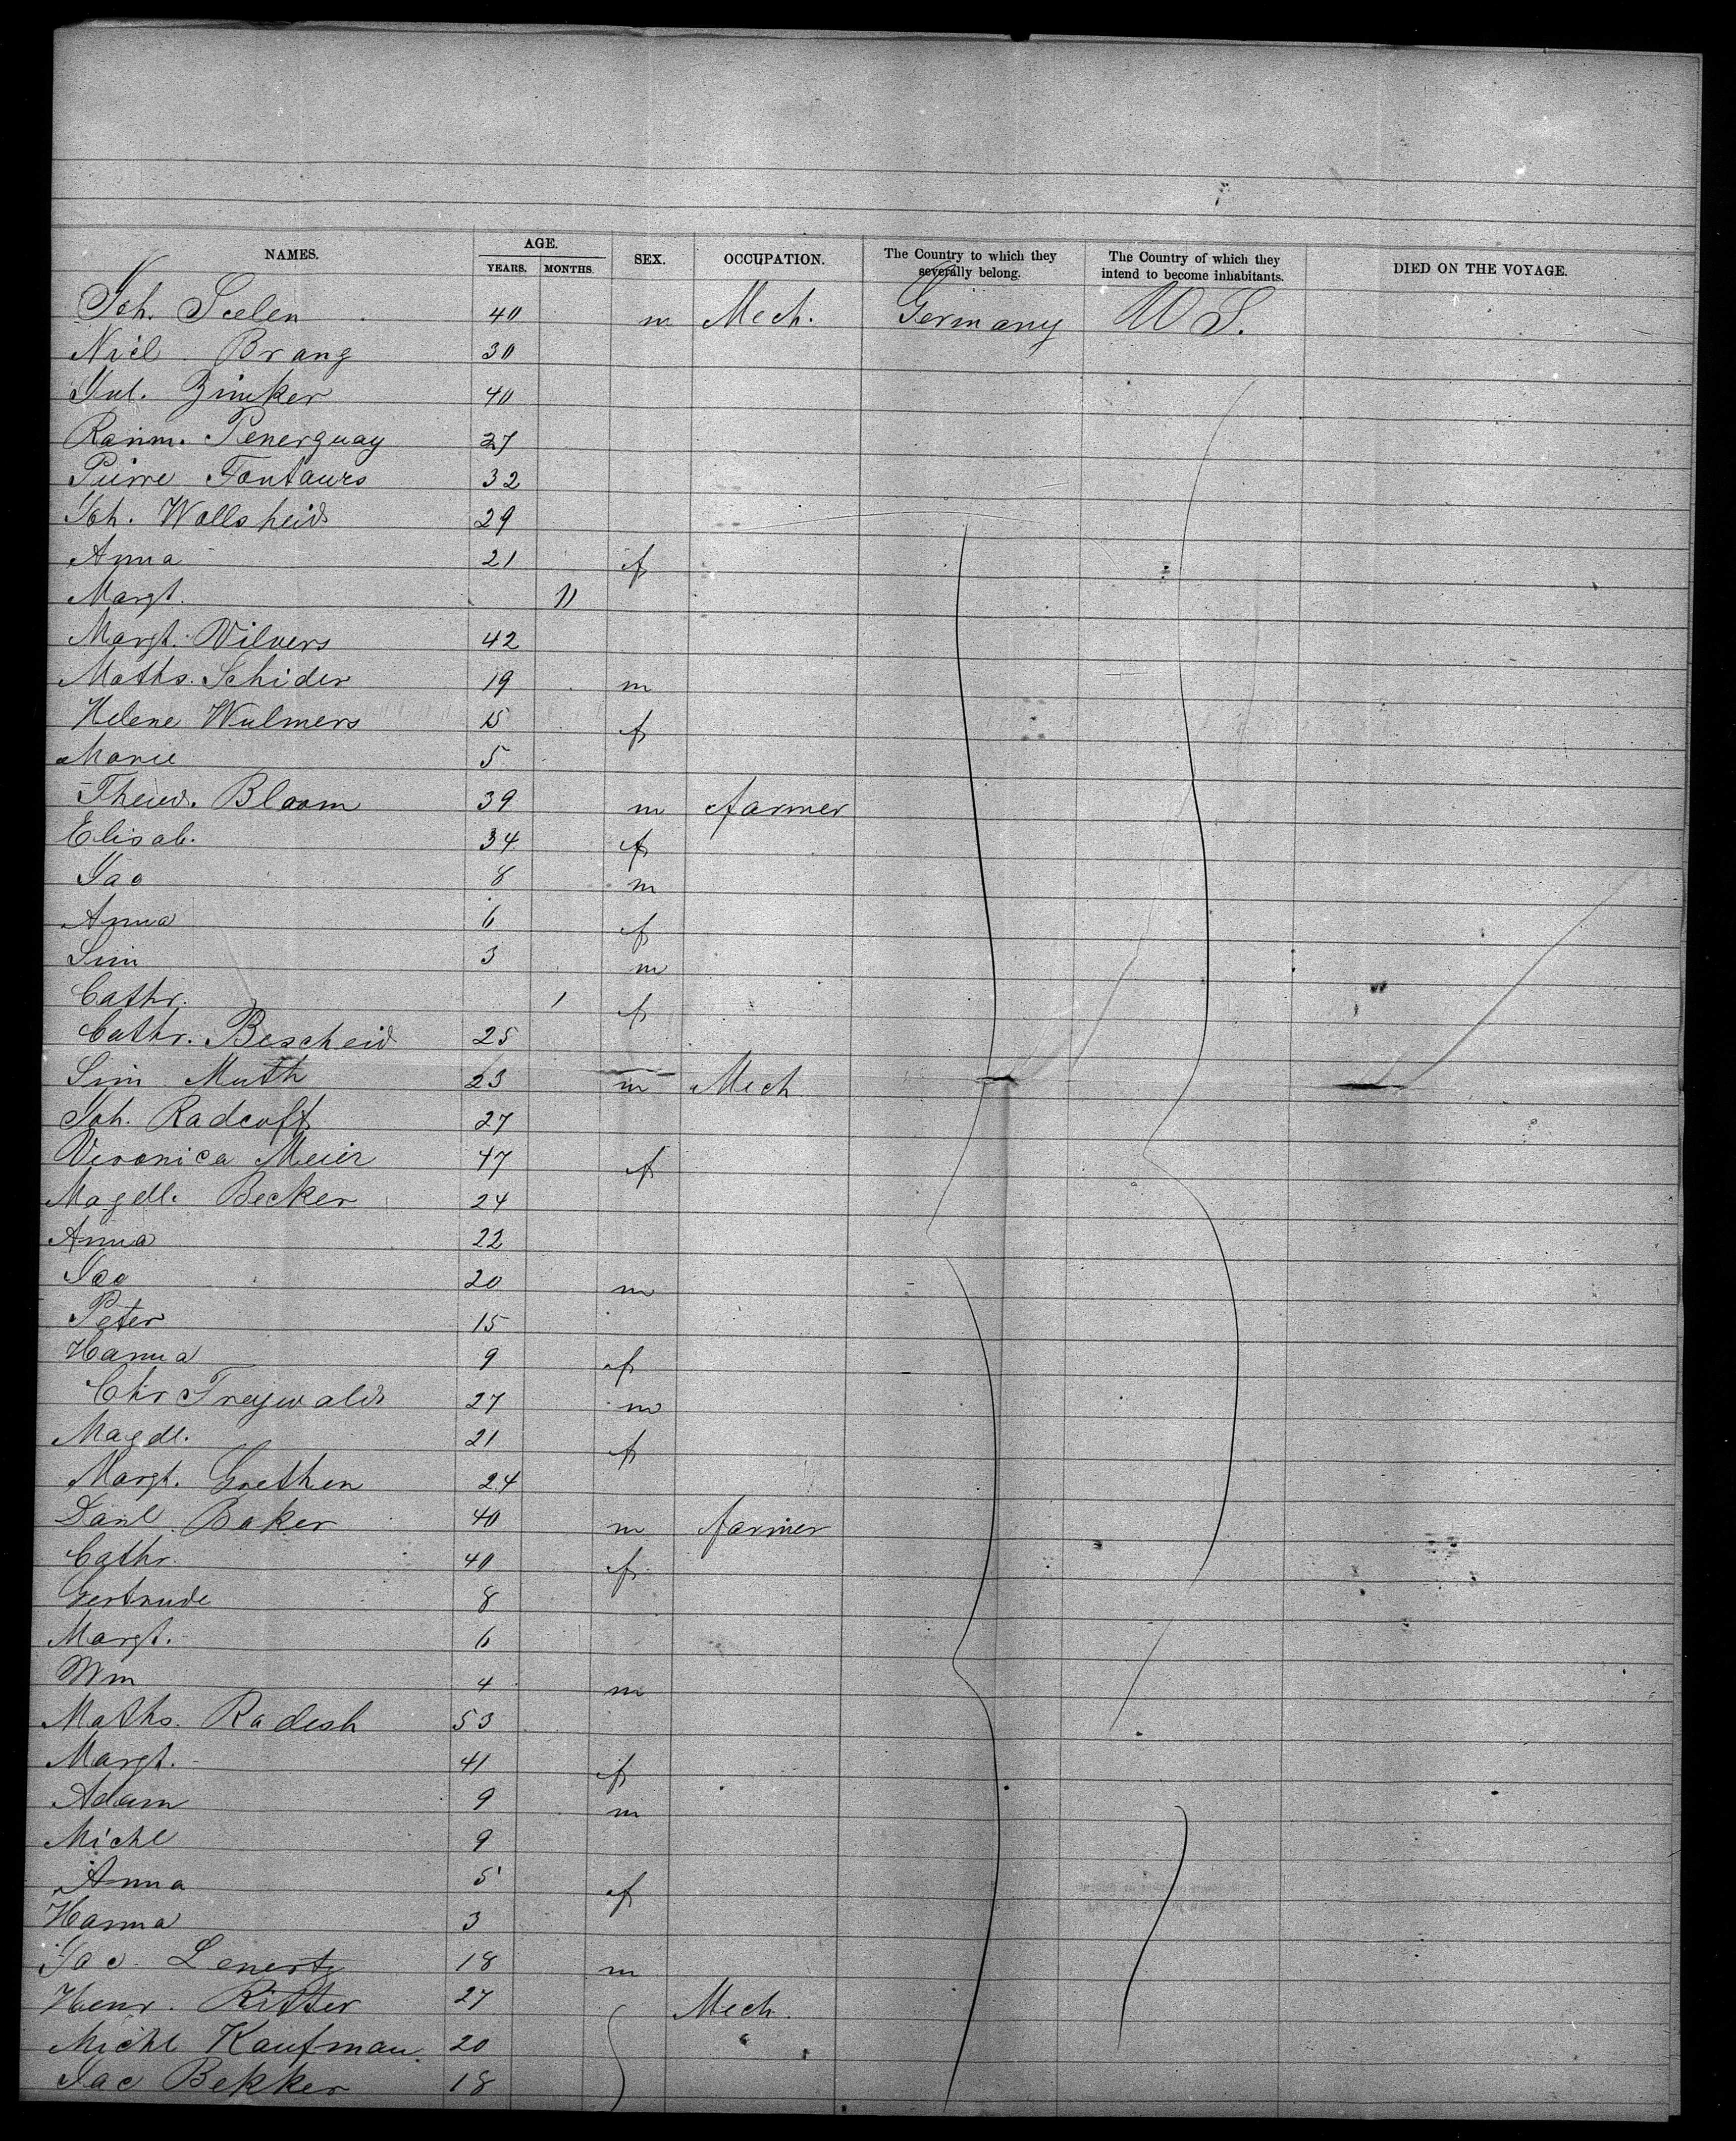 NAMES. AGE. YEARS. MONTHS. SEX. OCCUPATION. The Country to which they severally belong. The Country of which they intend to become inhabitants. DIED ON THE VOYAGE.
Joh. Seelen 40 m Mech. Germany U S.
Nicl. Brang 30
Jul. Zinker 40
Penerquay 27
Pierre Fontaurs 32
Joh. Wallsheid 29
Anna 21 f
Margt. 11
Margt. Wilvers 42
Maths. Schider 19 m
Helene Wulmers 15 f
Marie 5
Bloom 39 m farmer
Elisab. 34 f
Jac 8 m
Anna 6 f
Sim 3 m
Cathr. 1 f
Cathr. Bescheid 25
Sim Muth 23 m Mech
Joh. Radcoft 27
Veronica Meier 47 f
Magdl. Becker 24
Anna 22
Jac 20 m
Peter 15
Hanna 9 f
Chr Treywald 27 m
Magdl. 21 f
Margt. Grethen 24
Danl. Baker 40 m farmer
Cathr. 40 f
Gertrude 8
Margt. 6
Wm 4 m
Maths. Radesh 53
Margt. 41 f
Adam 9 m
Michl 9
Anna 5 f
Hanna 3
Jac. Lenertz 18 m
Henr. Ritter 27 Mech.
Michl Kaufman 20 "
Jac Bekker 18